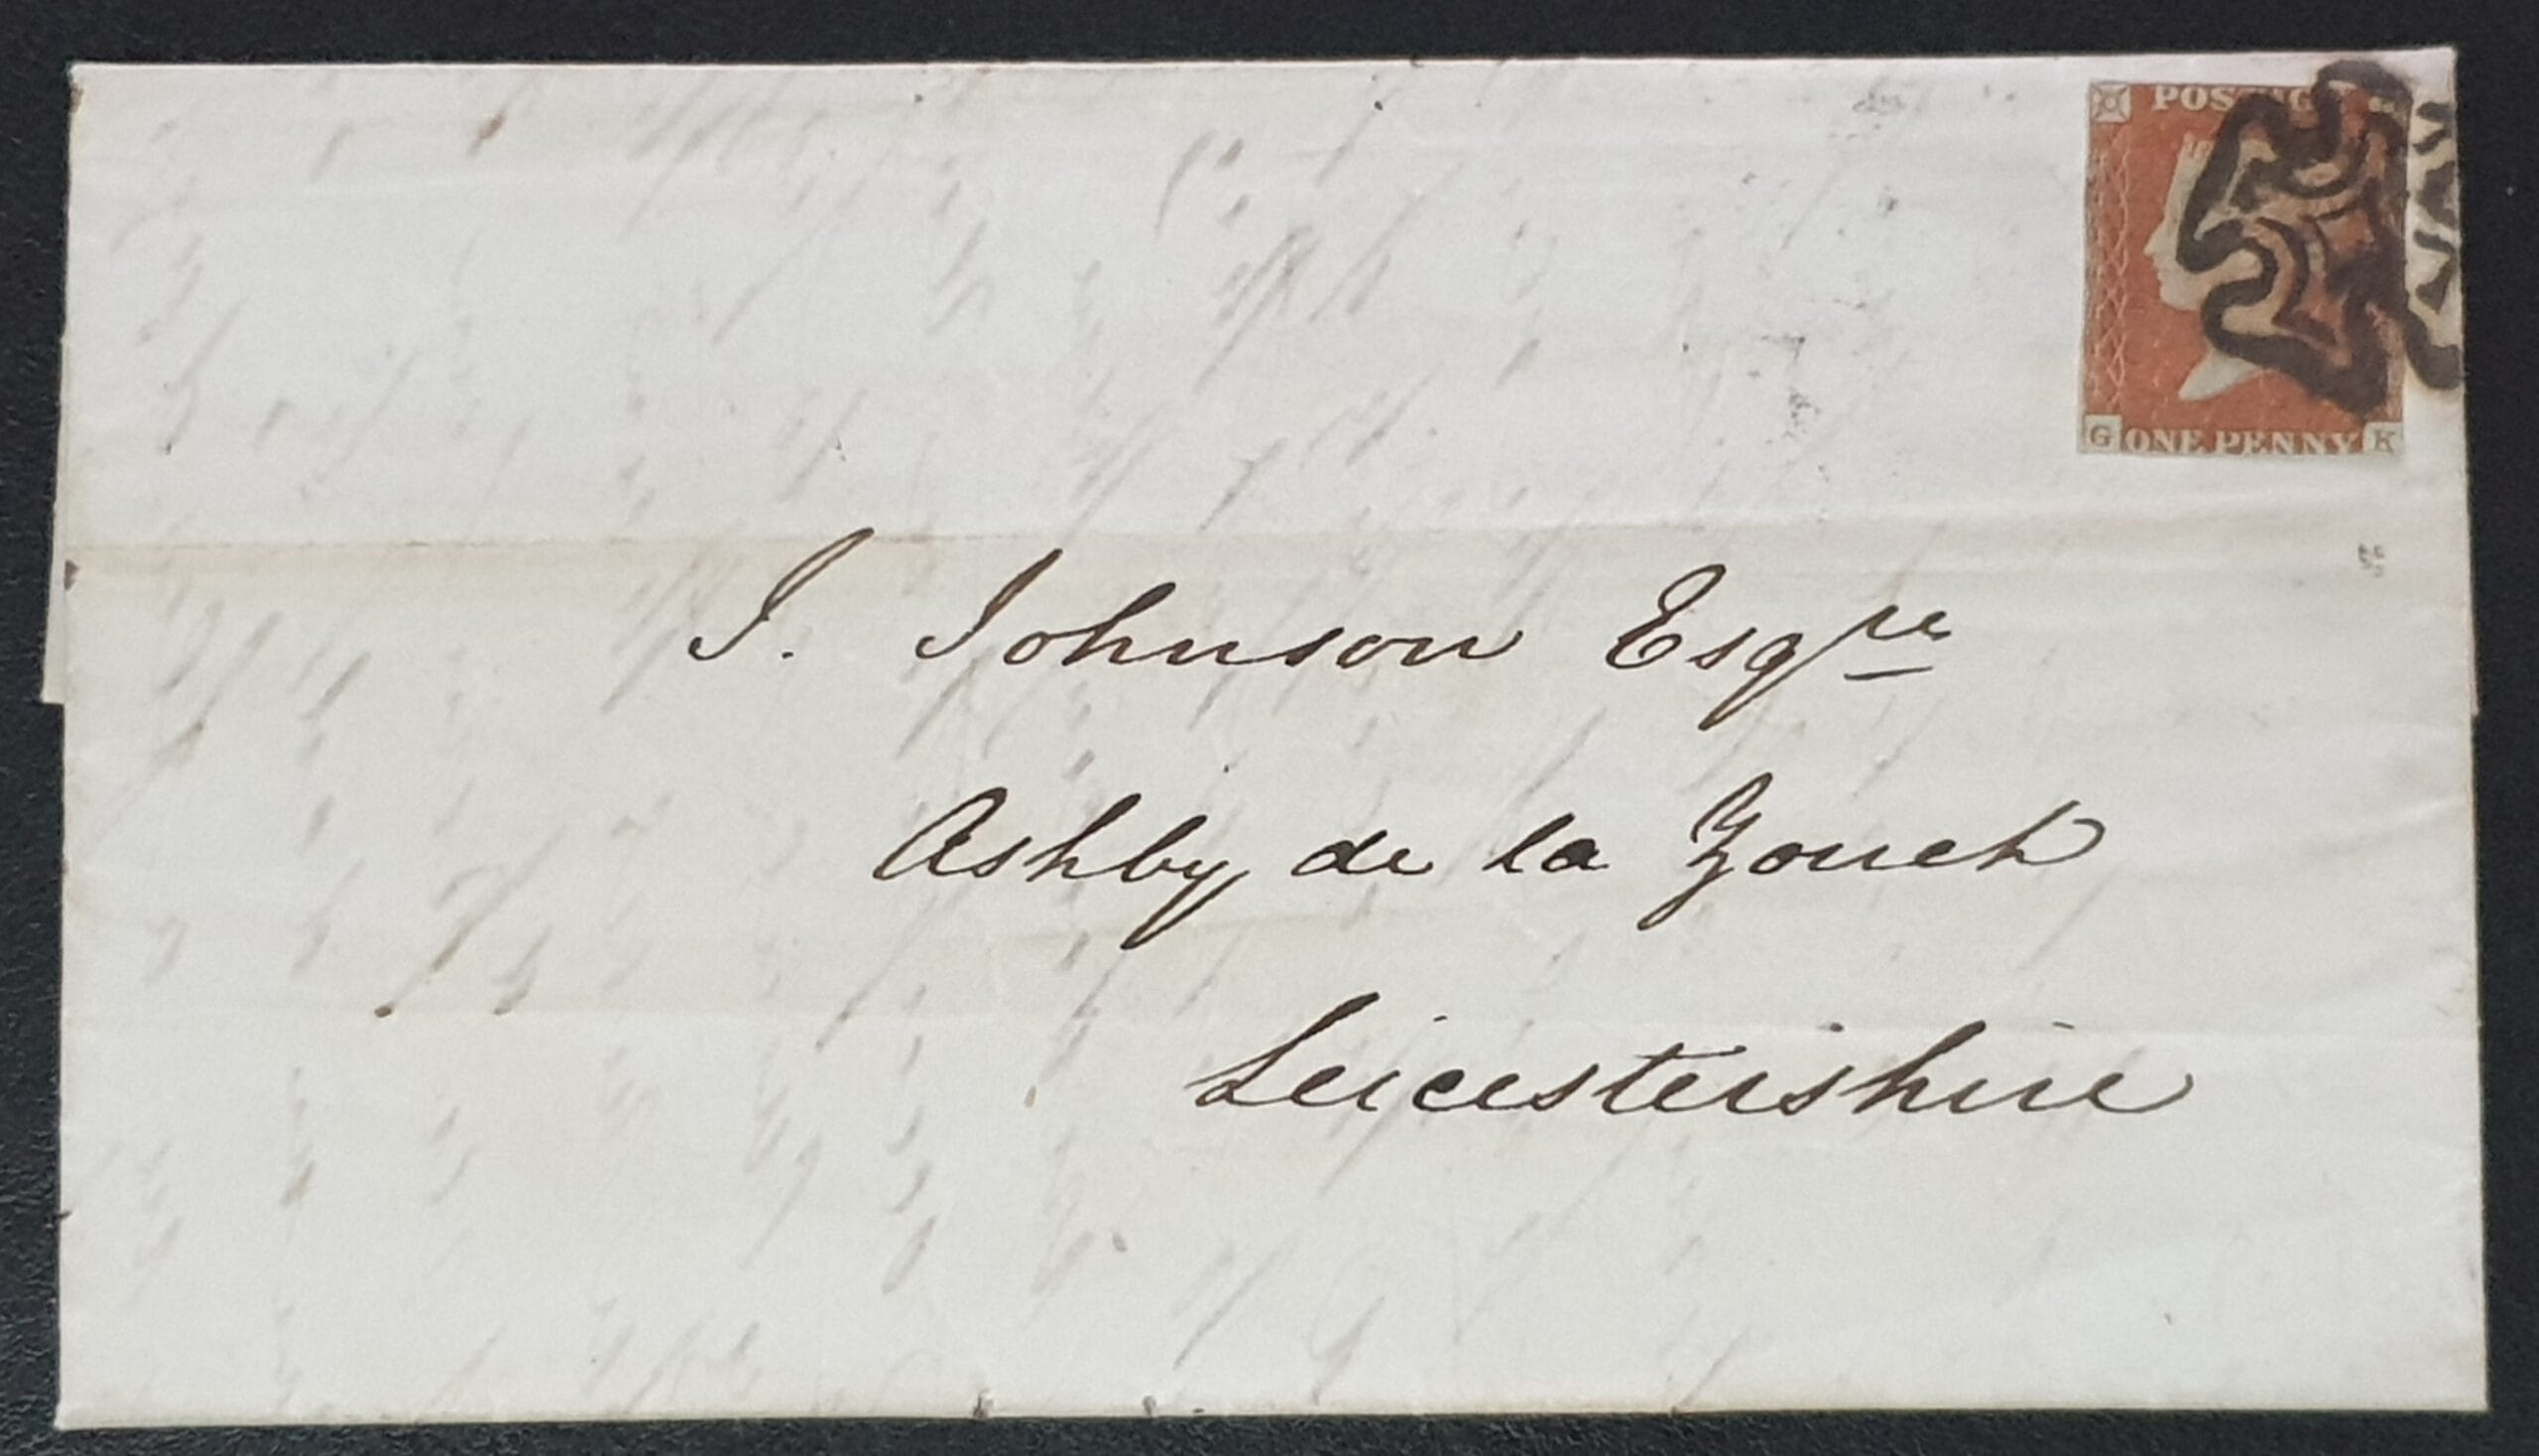 POSTAGE
G ONE PENNY K
J. Johnson Esqre
Ashby de la Zouch
Leicestershire